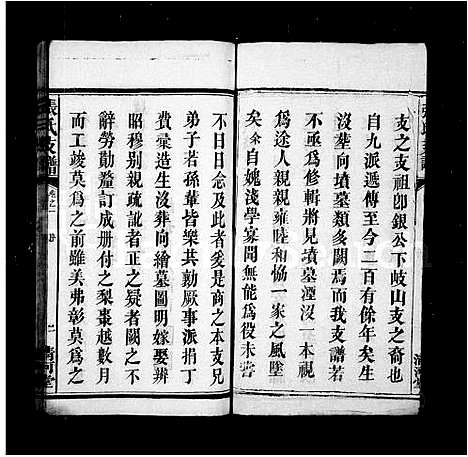 支之支祖卽銀公下岐山支之裔也
自九派遞傳至今二百有餘年矣生
沒葬向墳墓類多闕焉而我支譜若
不亟爲修輯將見墳墓湮沒一本視
爲途人親親雍睦和恊一家之風墜
矣余自媿淺學寡聞無能爲役未嘗
不日日念及此者爰是商之本支兄
弟子若孫輩皆樂共勷厥事派捐丁
費彙造生沒葬向繪墓圖明嫁娶辨
昭穆别親疏訛者正之疑者闕之不
辭勞勩釐訂成册付之梨棗越數月
而工竣莫爲之前雖美弗彰莫爲之
張氏支譜
卷之一
淸河堂